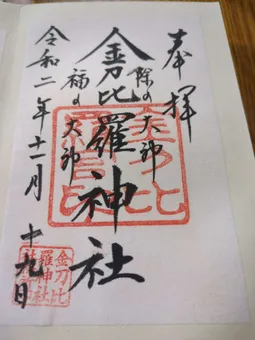 奉拝
除の大神
金刀比羅神社
福の大神
令和二年十一月十九日
金刀比
羅神社